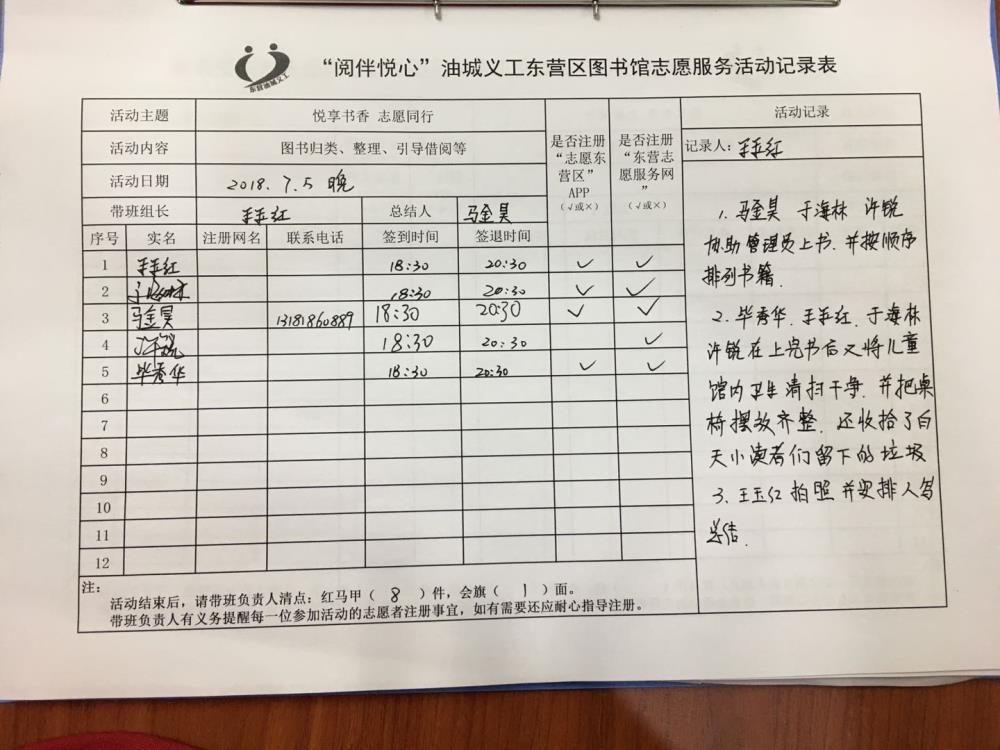 东营油城义工
“阅伴悦心”油城义工东营区图书馆志愿服务活动记录表
活动主题 悦享书香 志愿同行 是否注册“志愿东营区”APP（√或×） 是否注册“东营志愿服务网”（√或×） 活动记录
活动内容 图书归类、整理、引导借阅等 记录人：王玉红
活动日期 2018.7.5 晚
带班组长 王玉红 总结人 马金昊
序号 实名 注册网名 联系电话 签到时间 签退时间
1 王玉红 18:30 20:30 ✓ ✓
2 于海林 18:30 20:30 ✓ ✓
3 马金昊 13181860889 18:30 20:30 ✓ ✓
4 许锐 18:30 20:30 ✓
5 毕秀华 18:30 20:30 ✓ ✓
6
7
8
9
10
11
12
1、马金昊 于海林 许锐
协助管理员上书.并按顺序
排列书籍.
2、毕秀华.王玉红.于海林
许锐在上完书后又将儿童
馆内卫生清扫干净.并把桌
椅摆放齐整.还收拾了白
天小读者们留下的垃圾
3、王玉红拍照并安排人写
总结.
注：
活动结束后，请带班负责人清点：红马甲（ 8 ）件，会旗（ 1 ）面。
带班负责人有义务提醒每一位参加活动的志愿者注册事宜，如有需要还应耐心指导注册。